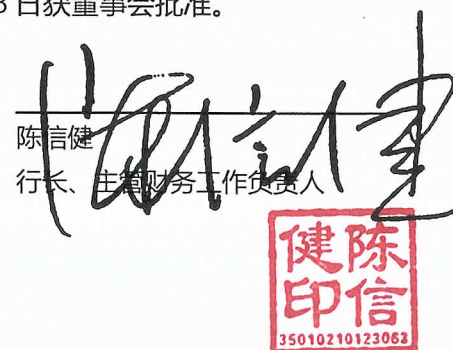 日获董事会批准。
陈信健
陈信健
行长、主管财务工作负责人
陈信
健印
35010210123063